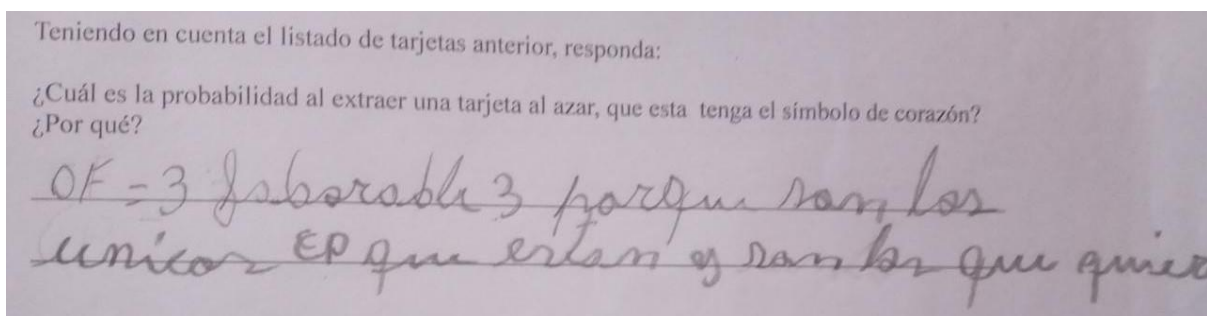 Teniendo en cuenta el listado de tarjetas anterior, responda:
¿Cuál es la probabilidad al extraer una tarjeta al azar, que esta tenga el símbolo de corazón?
¿Por qué?
OF = 3 faborable 3 porque son los
unicos EP que estan y son los que quier